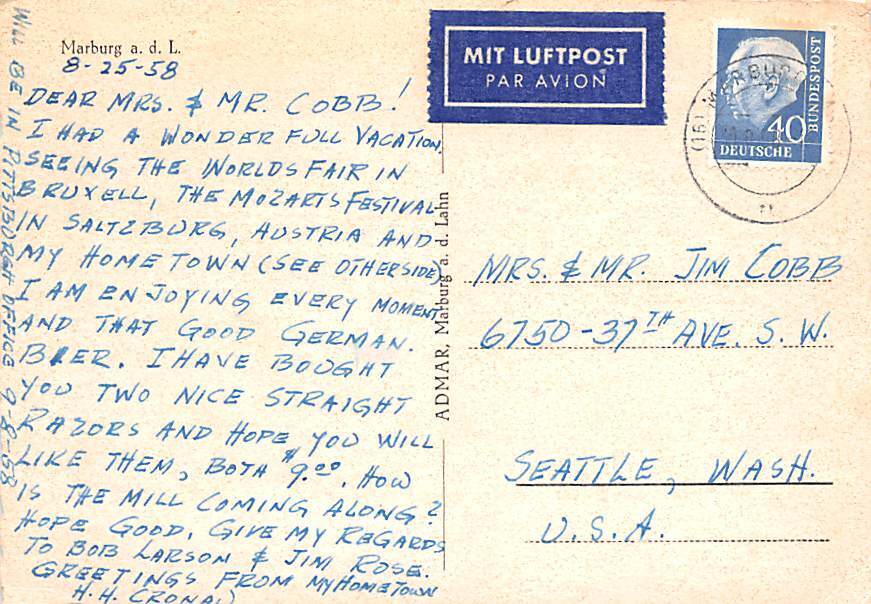 Marburg a. d. L.
8-25-58
DEAR MRS. & MR. COBB!
I HAD A WONDER FULL VACATION,
SEEING THE WORLDS FAIR IN
BRUXELL, THE MOZARTS FESTIVAL
IN SALTZBURG, AUSTRIA AND
MY HOMETOWN (SEE OTHERSIDE)
I AM ENJOYING EVERY MOMENT
AND THAT GOOD GERMAN.
BEER. I HAVE BOUGHT
YOU TWO NICE STRAIGHT
RAZORS AND HOPE YOU WILL
LIKE THEM, BOTH $9.00. HOW
IS THE MILL COMING ALONG?
HOPE GOOD, GIVE MY REGARDS
TO BOB LARSON & JIM ROSE.
GREETINGS FROM MY HOMETOWN
H. H.
WILL BE IN PITTSBURGH OFFICE 9-8-58
ADMAR, Marburg a. d. Lahn
MIT LUFTPOST
PAR AVION
40
DEUTSCHE
BUNDESPOST
(16) MARBURG
MRS. & MR. JIM COBB
6750-37TH AVE. S. W.
SEATTLE, WASH.
U.S.A.